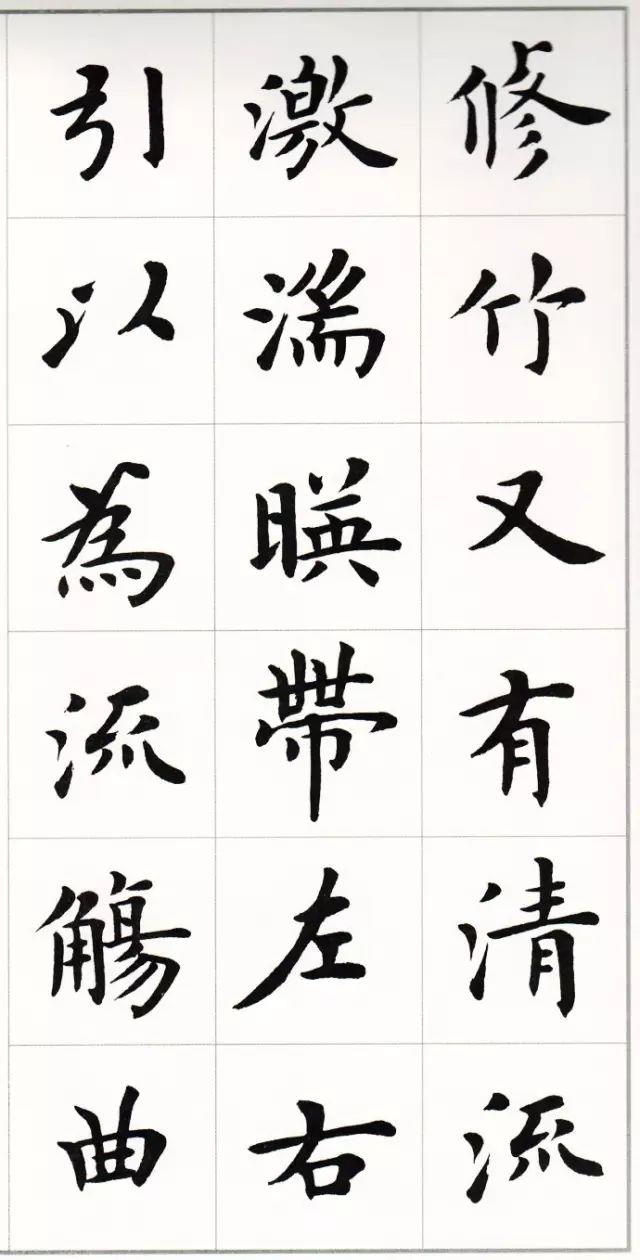 修竹又有清流
激湍暎帶左右
引以為流觴曲